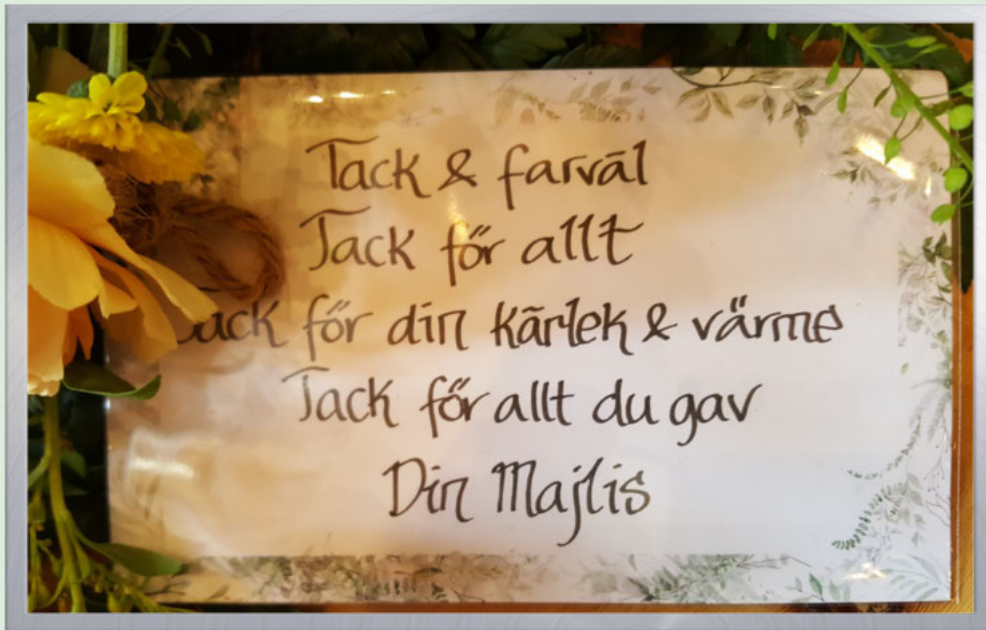 Tack & farväl
Tack för allt
Tack för din kärlek & värme
Tack för allt du gav
Din Majlis